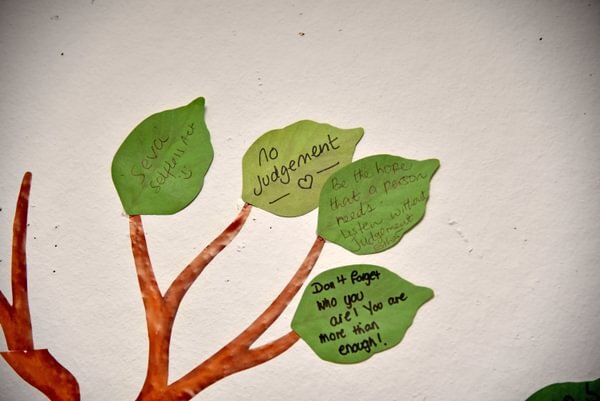 Seva
selfless Act
:)
No
Judgement
— ♡ —
Be the hope
that a person
needs
Listen without
Judgement
Don't forget
who you
are! You are
more than
enough!